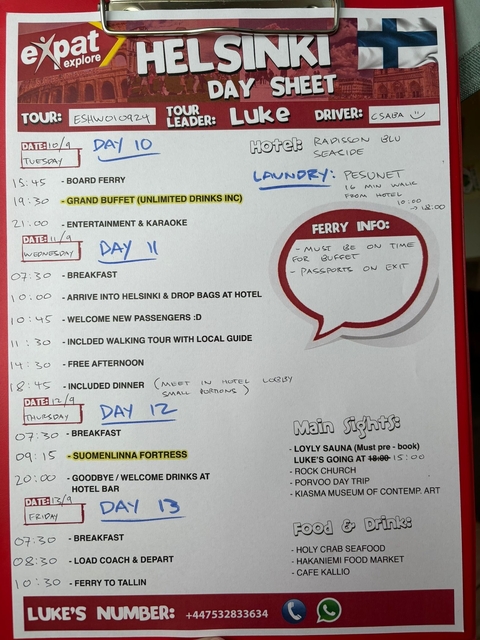 expat
explore
HELSINKI
DAY SHEET
TOUR: ESHW010924 TOUR LEADER: Luke DRIVER: CSABA
DATE: 10/9
TUESDAY
DAY 10
15:45 - BOARD FERRY
19:30 - GRAND BUFFET (UNLIMITED DRINKS INC)
21:00 - ENTERTAINMENT & KARAOKE
DATE: 11/9
WEDNESDAY
DAY 11
07:30 - BREAKFAST
10:00 - ARRIVE INTO HELSINKI & DROP BAGS AT HOTEL
10:45 - WELCOME NEW PASSENGERS :D
11:30 - INCLDED WALKING TOUR WITH LOCAL GUIDE
14:30 - FREE AFTERNOON
18:45 - INCLUDED DINNER (MEET IN HOTEL LOBBY
SMALL PORTIONS)
DATE: 12/9
THURSDAY
DAY 12
07:30 - BREAKFAST
09:15 - SUOMENLINNA FORTRESS
20:00 - GOODBYE / WELCOME DRINKS AT
HOTEL BAR
DATE: 13/9
FRIDAY
DAY 13
07:30 - BREAKFAST
08:30 - LOAD COACH & DEPART
10:30 - FERRY TO TALLIN
Hotel: RADISSON BLU
SEASIDE
LAUNDRY: PESUNET
16 MIN WALK
FROM HOTEL
10:00
→ 18:00
FERRY INFO:
- MUST BE ON TIME
FOR BUFFET
- PASSPORTS ON EXIT
Main Sights:
- LOYLY SAUNA (Must pre - book)
LUKE'S GOING AT 18:00 15:00
- ROCK CHURCH
- PORVOO DAY TRIP
- KIASMA MUSEUM OF CONTEMP. ART
Food & Drink:
- HOLY CRAB SEAFOOD
- HAKANIEMI FOOD MARKET
- CAFE KALLIO
LUKE'S NUMBER: +447532833634